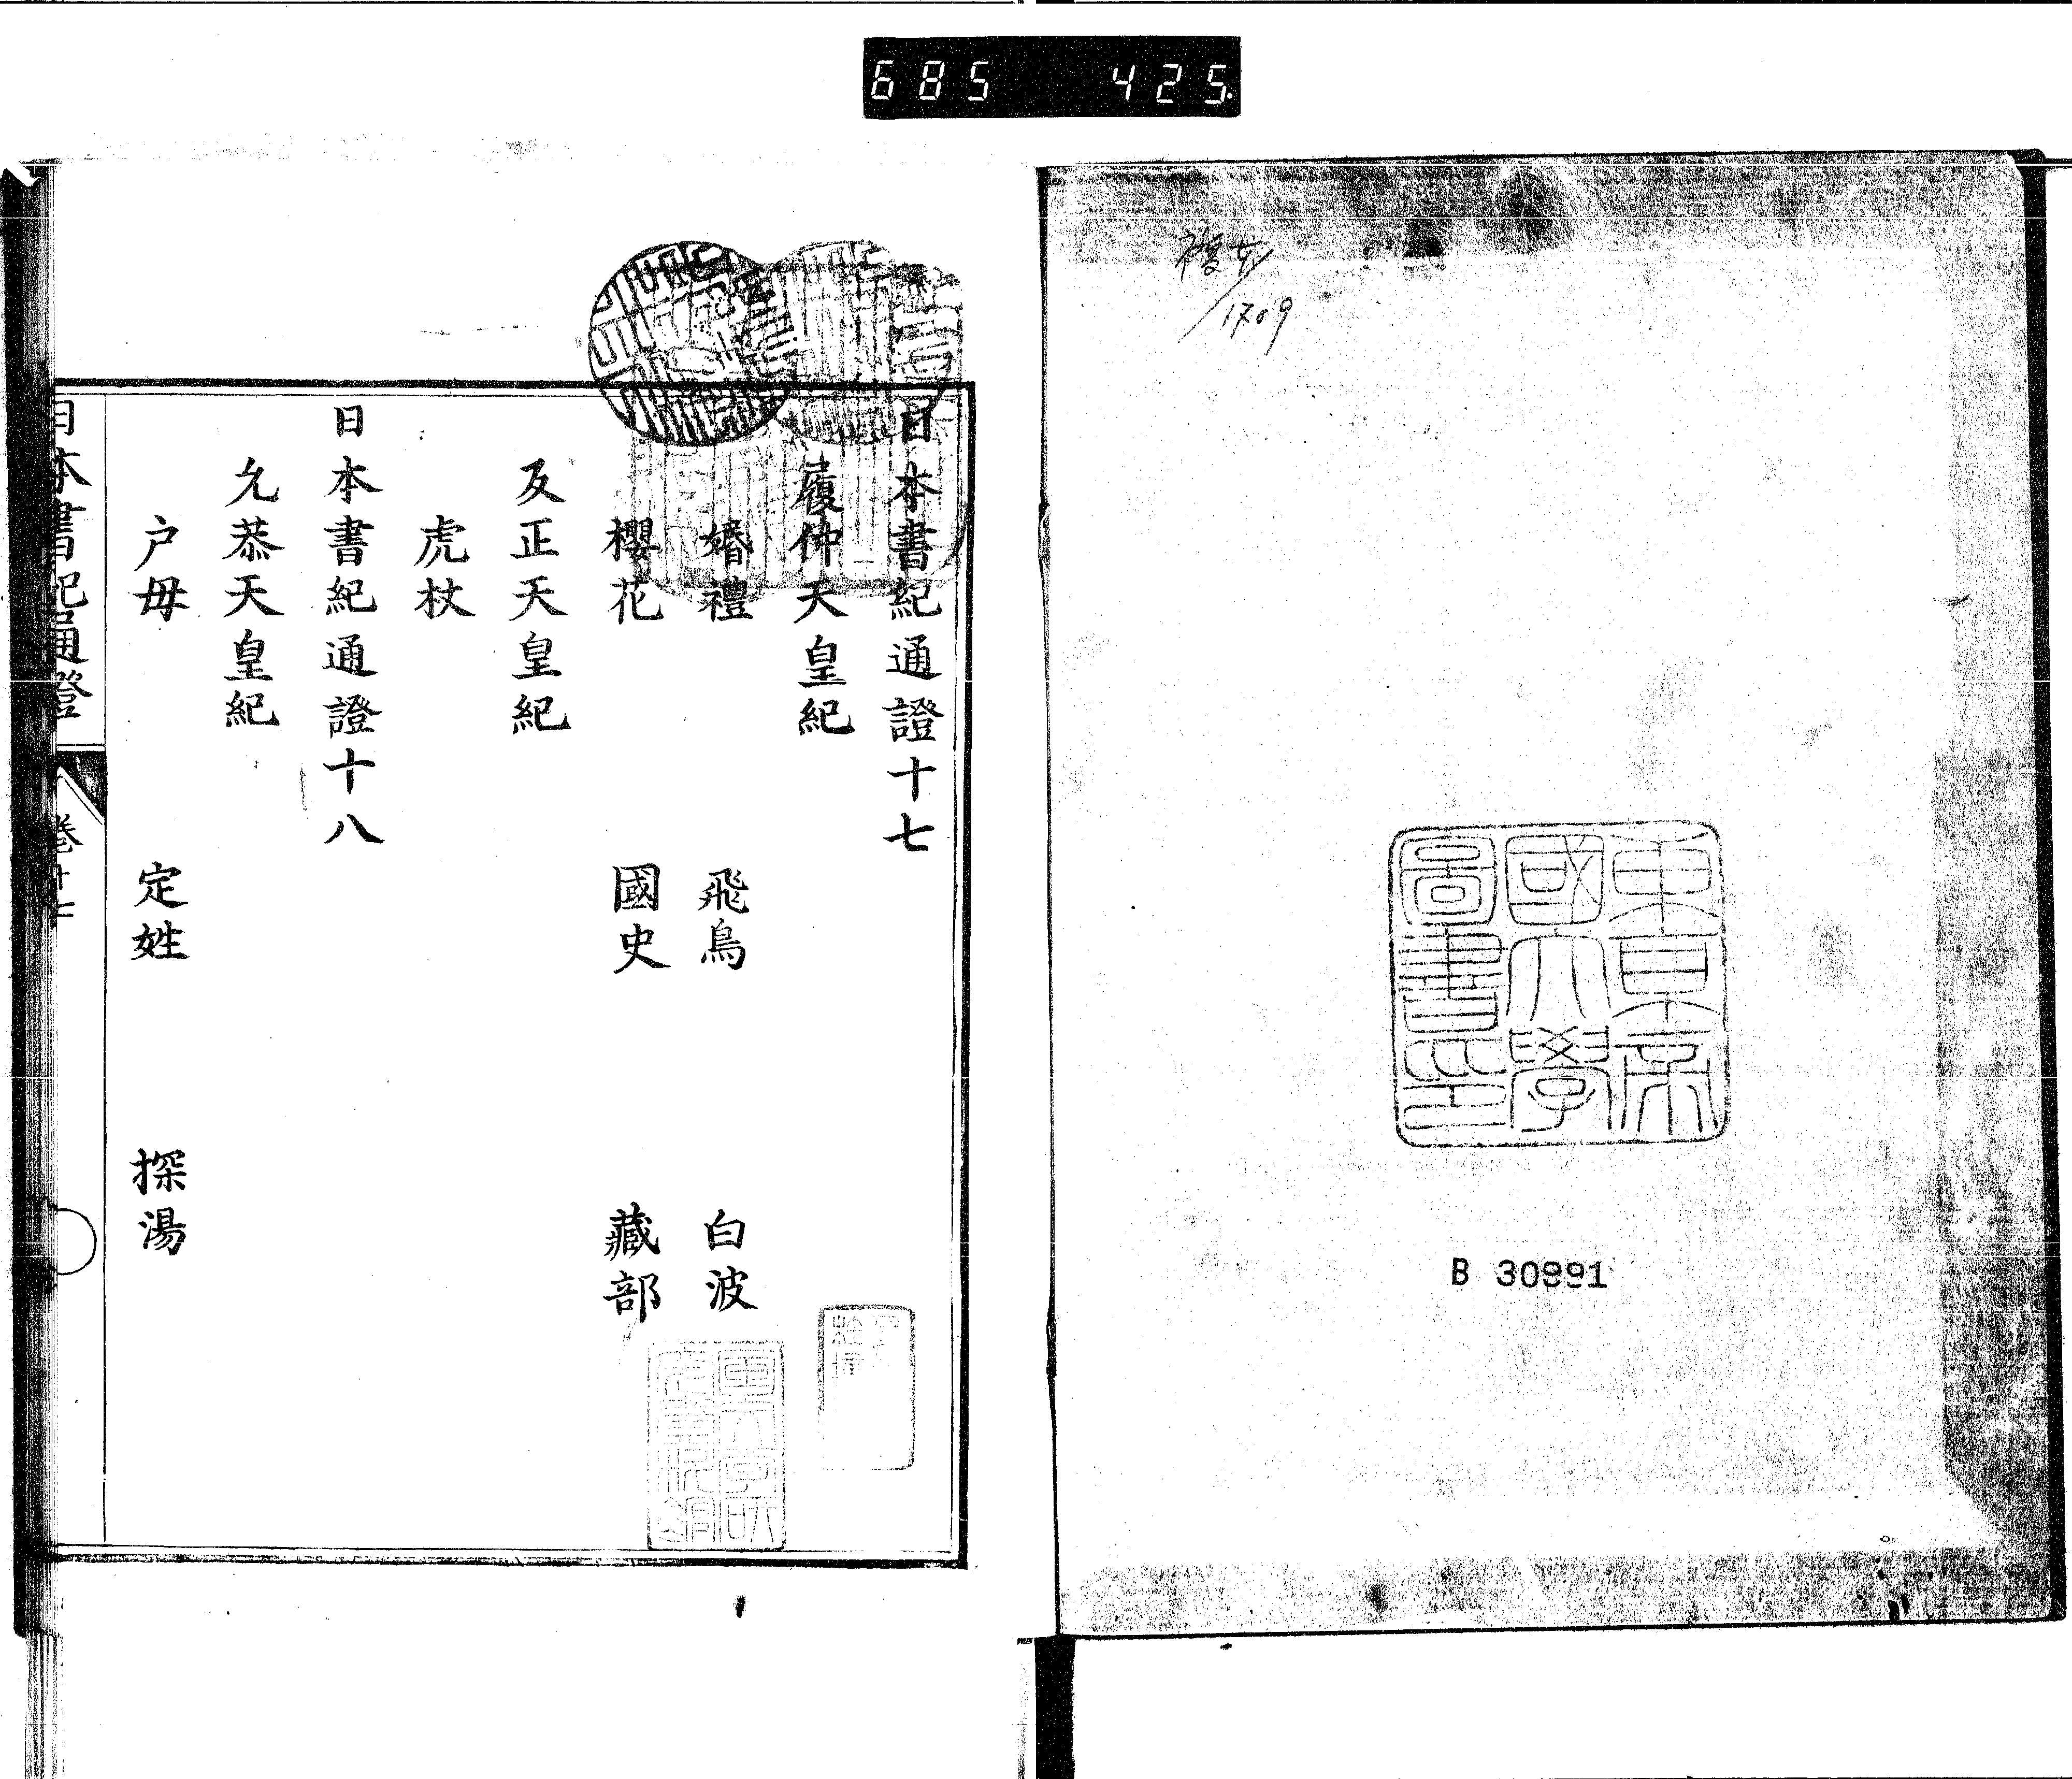 685 425
1709
東京帝
國大學
圖書印
B 30991
日本書紀通證十七
履仲天皇紀
婚禮 飛鳥 白波
櫻花 國史 藏部
反正天皇紀
虎杖
日本書紀通證十八
允恭天皇紀
戸母 定姓 探湯
日本書紀通證 卷十七